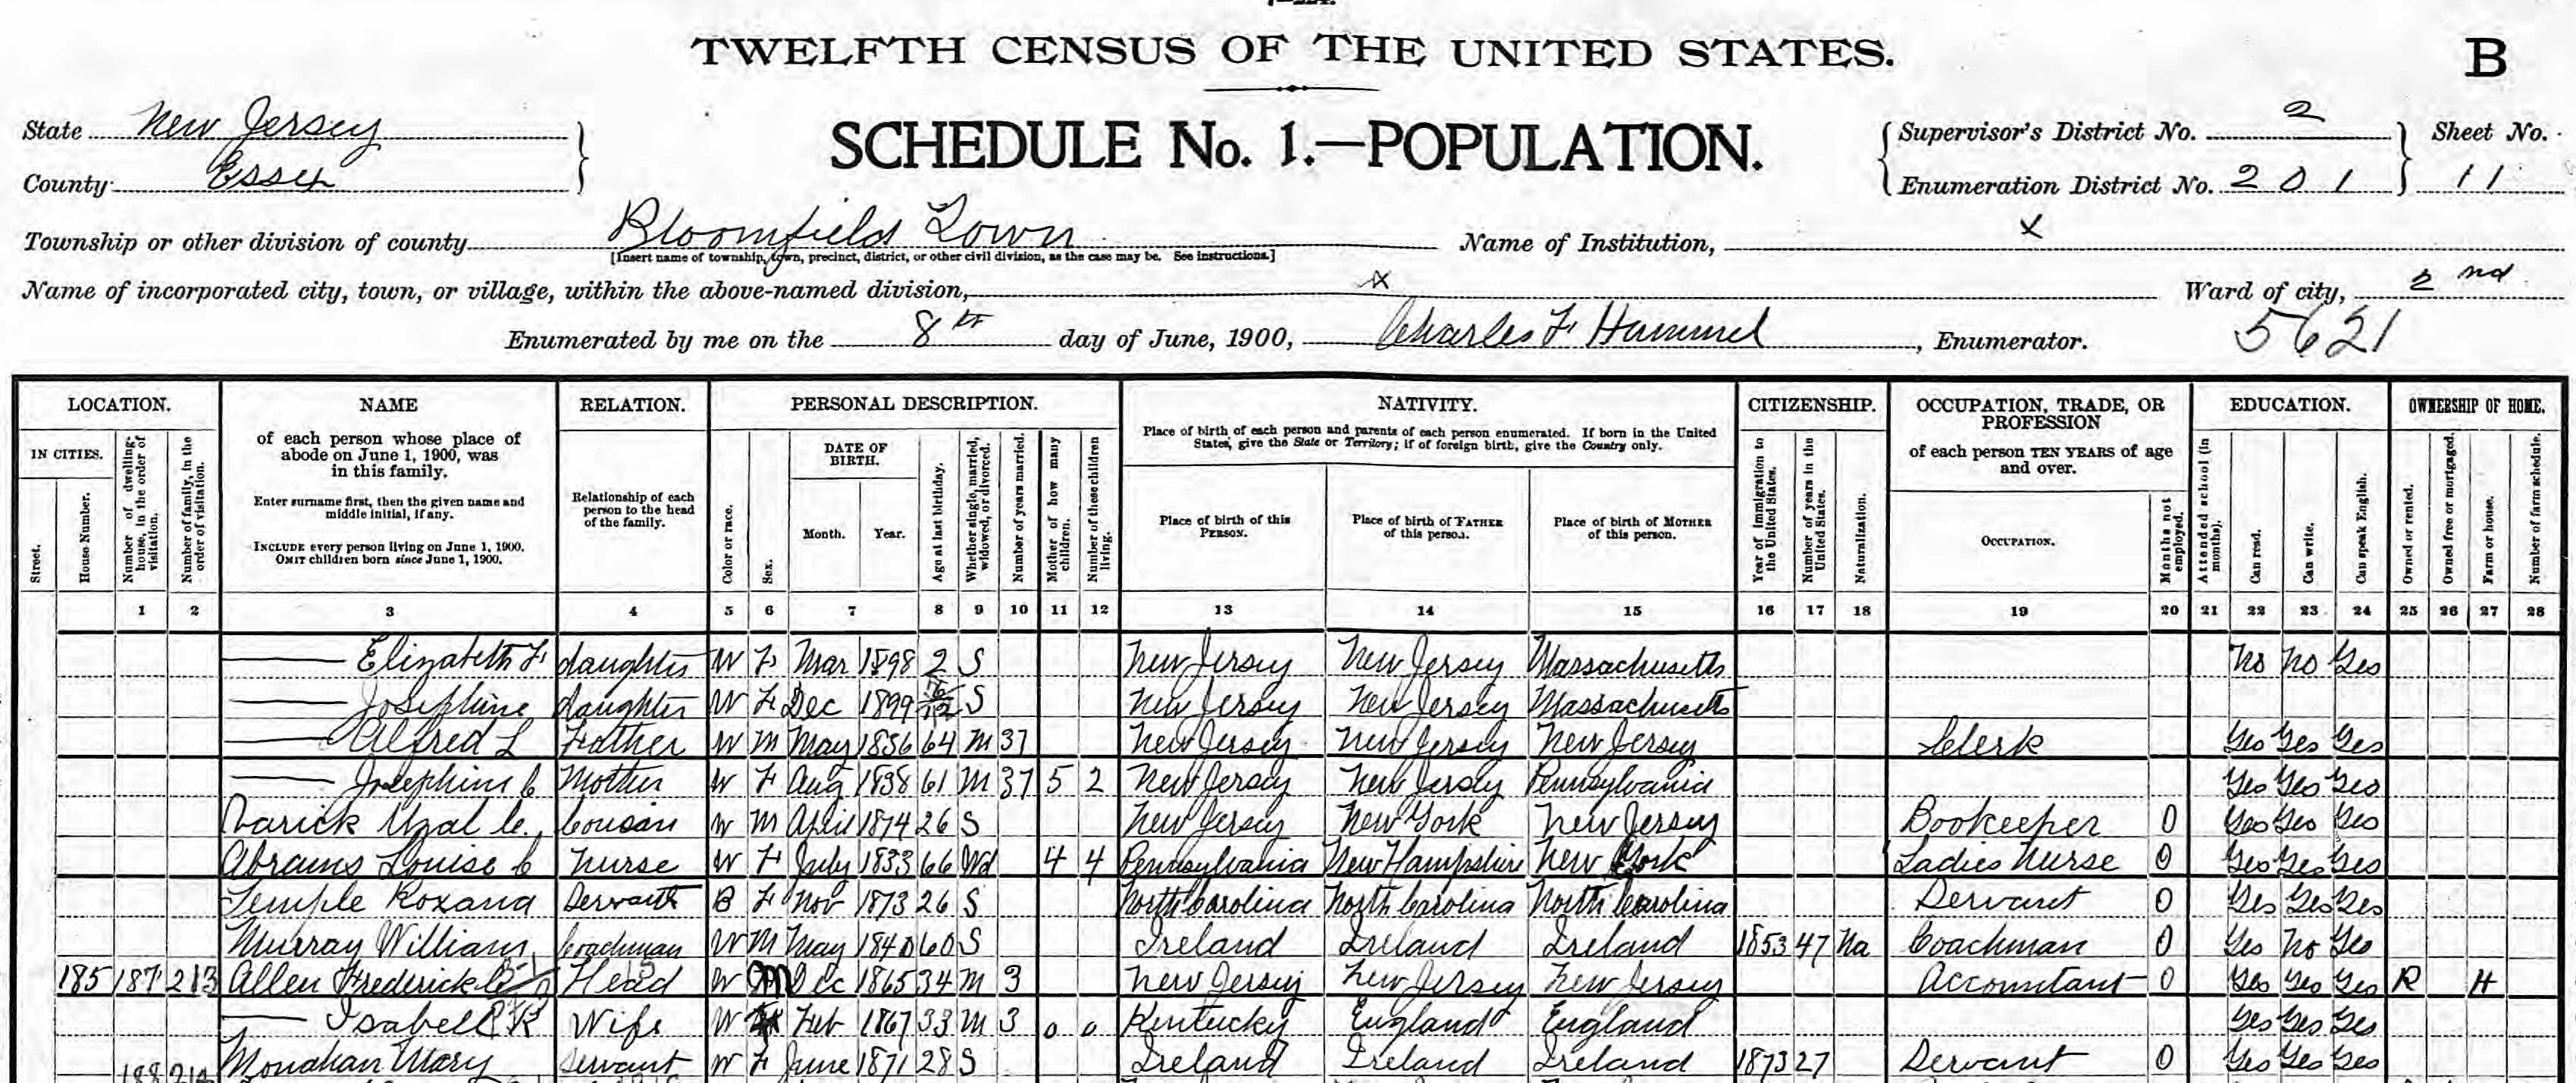 TWELFTH CENSUS OF THE UNITED STATES.
B
State New Jersey
County Essex
SCHEDULE No. 1.—POPULATION.
Supervisor's District No. 2
Enumeration District No. 201
Sheet No.
11
Township or other division of county Bloomfield Town
[Insert name of township, town, precinct, district, or other civil division, as the case may be. See instructions.]
Name of Institution, X
Name of incorporated city, town, or village, within the above-named division, X
Ward of city, 2nd
Enumerated by me on the 8th day of June, 1900, Charles F Hammel, Enumerator.
5621
LOCATION.
IN CITIES.
Street.
House Number.
Number of dwelling-house, in the order of visitation.
Number of family, in the order of visitation.
NAME
of each person whose place of abode on June 1, 1900, was in this family.
Enter surname first, then the given name and middle initial, if any.
INCLUDE every person living on June 1, 1900.
OMIT children born since June 1, 1900.
RELATION.
Relationship of each person to the head of the family.
PERSONAL DESCRIPTION.
Color or race.
Sex.
DATE OF BIRTH.
Month.
Year.
Age at last birthday.
Whether single, married, widowed, or divorced.
Number of years married.
Mother of how many children.
Number of these children living.
NATIVITY.
Place of birth of each person and parents of each person enumerated. If born in the United States, give the State or Territory; if of foreign birth, give the Country only.
Place of birth of this PERSON.
Place of birth of FATHER of this person.
Place of birth of MOTHER of this person.
CITIZENSHIP.
Year of immigration to the United States.
Number of years in the United States.
Naturalization.
OCCUPATION, TRADE, OR PROFESSION
of each person TEN YEARS of age and over.
OCCUPATION.
Months not employed.
EDUCATION.
Attended school (in months).
Can read.
Can write.
Can speak English.
OWNERSHIP OF HOME.
Owned or rented.
Owned free or mortgaged.
Farm or house.
Number of farm schedule.
1 2 3 4 5 6 7 8 9 10 11 12 13 14 15 16 17 18 19 20 21 22 23 24 25 26 27 28
— Elizabeth F daughter W F Mar 1898 2 S New Jersey New Jersey Massachusetts No No Yes
— Josephine daughter W F Dec 1899 S New Jersey New Jersey Massachusetts
— Alfred L Father W M May 1836 64 M 37 New Jersey New Jersey New Jersey Clerk Yes Yes Yes
— Josephine C Mother W F Aug 1838 61 M 37 5 2 New Jersey New Jersey Pennsylvania Yes Yes Yes
Varick Uzal C. Cousin W M April 1874 26 S New Jersey New York New Jersey Bookeeper 0 Yes Yes Yes
Abrams Louise C Nurse W F July 1833 66 Wd 4 4 Pennsylvania New Hampshire New York Ladies Nurse 0 Yes Yes Yes
Temple Roxana Servant B F Nov 1873 26 S North Carolina North Carolina North Carolina Servant 0 Yes Yes Yes
Murray William Coachman W M May 1840 60 S Ireland Ireland Ireland 1853 47 Na Coachman 0 Yes No Yes
185 187 213 Allen Frederick Head W M Dec 1865 34 M 3 New Jersey New Jersey New Jersey Accountant 0 Yes Yes Yes R H
— Isabell R W Feb 1867 33 M 3 0 0 Wife Kentucky England England Yes Yes Yes
Monahan Mary Servant W F June 1871 28 S Ireland Ireland Ireland 1873 27 Servant 0 Yes Yes Yes